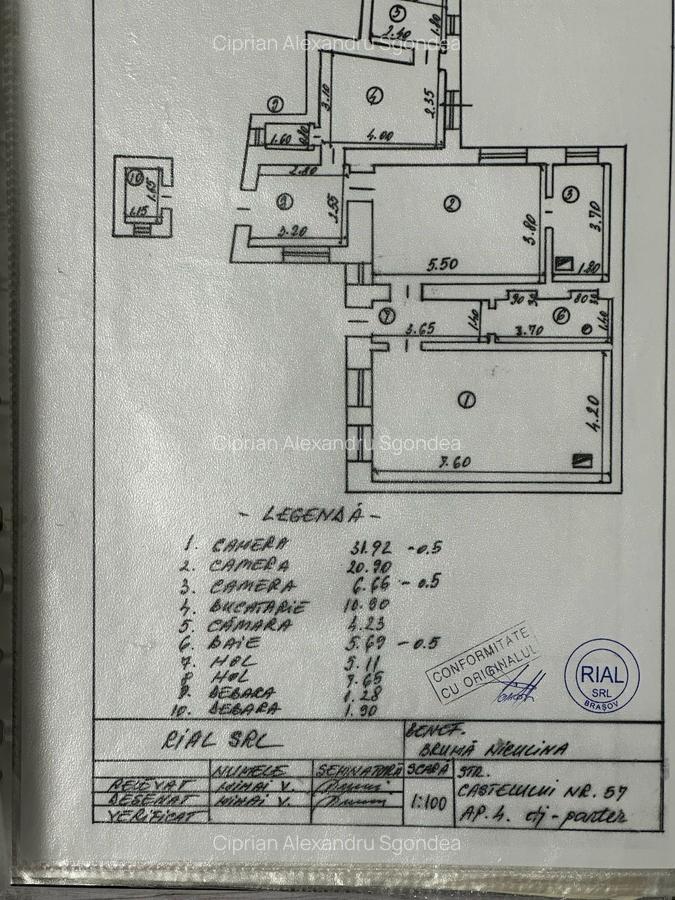 5
2.40
1.80
Ciprian Alexandru Sgondea
4
3.10
2.35
4.00
9
1.60
0.80
10
1.65
1.15
2.80
8
2.55
3.20
2
3.80
5.50
3
3.70
1.80
7
3.65
1.40
90
80
6
3.70
1.40
1
4.20
7.60
Ciprian Alexandru Sgondea
- LEGENDĂ -
1. CAMERA 31.92 -0.5
2. CAMERA 20.90
3. CAMERA 6.66 -0.5
4. BUCATARIE 10.90
5. CĂMARA 4.23
6. BAIE 5.69 -0.5
7. HOL 5.11
8 HOL 7.65
9. DEBARA 1.28
10. DEBARA 1.90
CONFORMITATE
CU ORIGINALUL
RIAL
SRL
BRAȘOV
RIAL SRL
BENEF.
BRUMĂ NICULINA
NUMELE SEMNATURĂ SCARA STR.
RELEVAT MIHAI V.
DESENAT MIHAI V.
VERIFICAT
1:100
CASTELULUI NR. 57
AP. 4. dj - parter
Ciprian Alexandru Sgondea